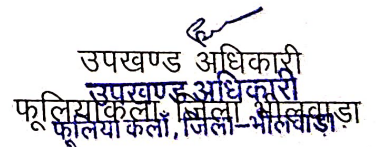 उपखण्ड अधिकारी
उपखण्ड अधिकारी
फूलियाकलां जिला भीलवाड़ा
फूलिया कलाँ, जिला-भीलवाड़ा